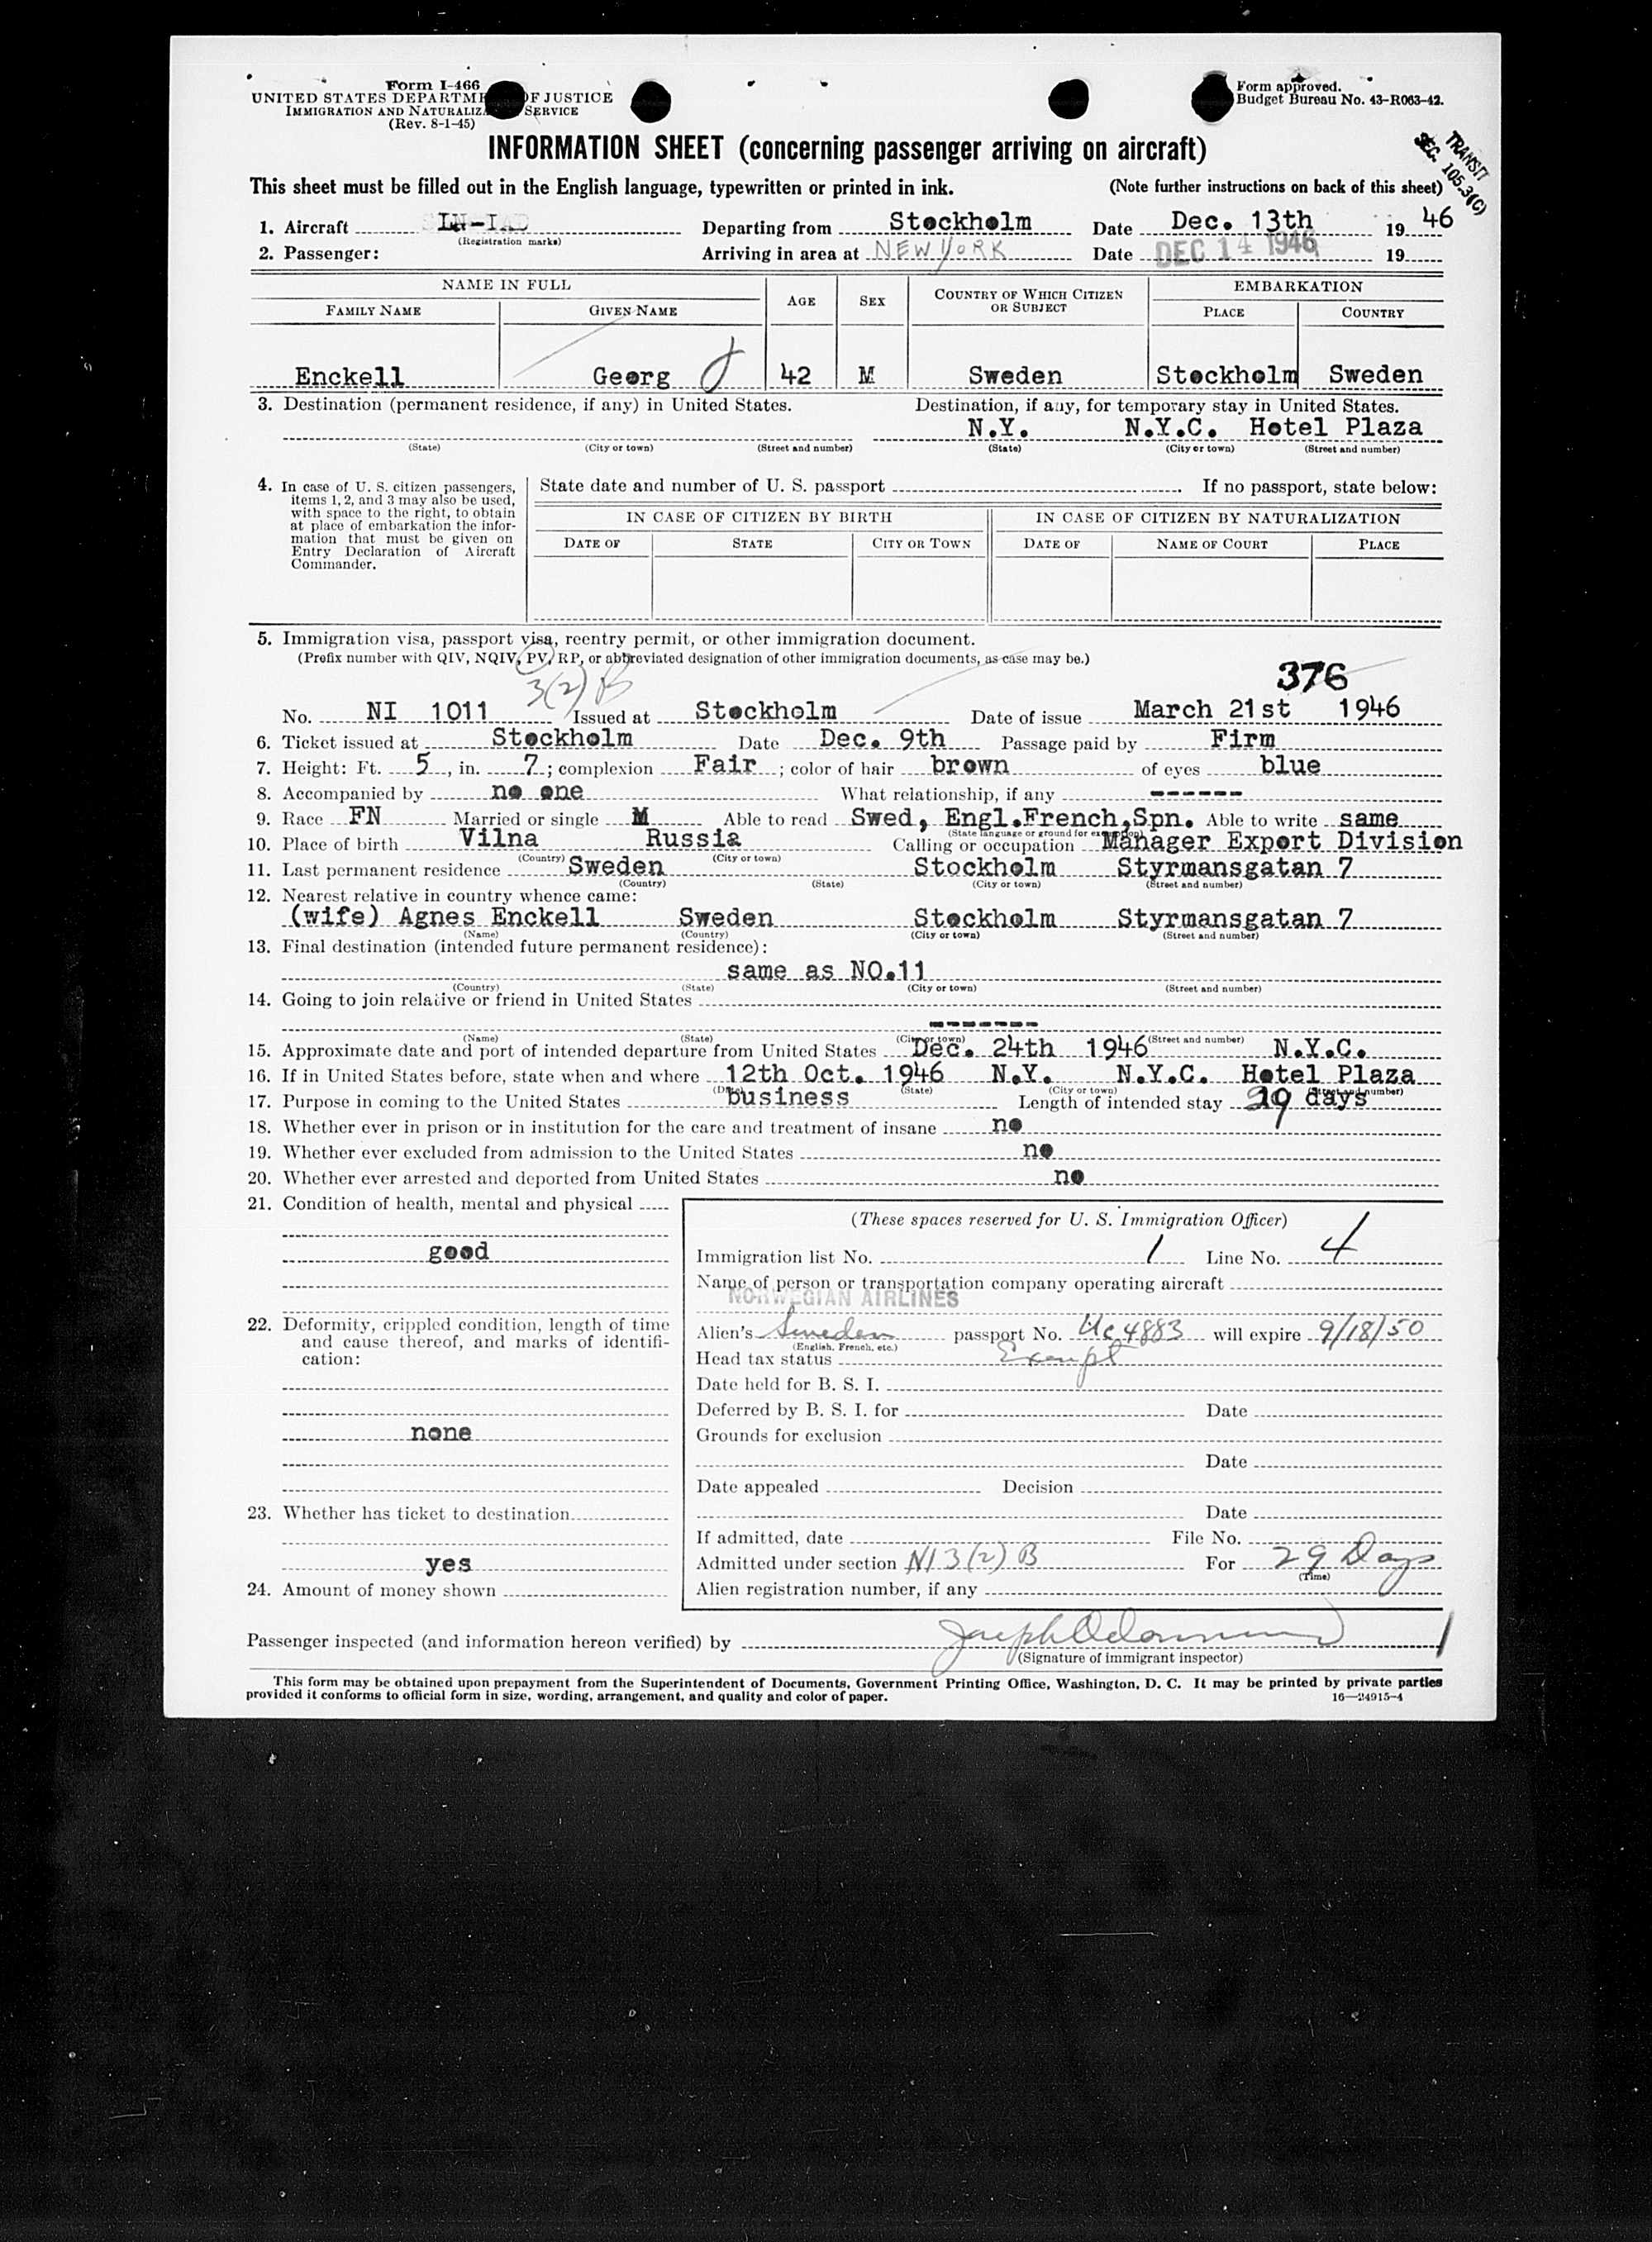 Form I-466
UNITED STATES DEPARTME OF JUSTICE
IMMIGRATION AND NATURALIZA SERVICE
(Rev. 8-1-45)
Form approved.
Budget Bureau No. 43-R063-42.
TRANSIT
SEC. 105.3(C)
INFORMATION SHEET (concerning passenger arriving on aircraft)
This sheet must be filled out in the English language, typewritten or printed in ink. (Note further instructions on back of this sheet)
1. Aircraft LN-IAD Departing from Stockholm Date Dec. 13th 1946
(Registration marks)
2. Passenger: Arriving in area at NEW YORK Date DEC 14 1946 19
NAME IN FULL AGE SEX COUNTRY OF WHICH CITIZEN OR SUBJECT EMBARKATION
FAMILY NAME GIVEN NAME PLACE COUNTRY
Enckell Georg 42 M Sweden Stockholm Sweden
3. Destination (permanent residence, if any) in United States. Destination, if any, for temporary stay in United States.
N.Y. N.Y.C. Hotel Plaza
(State) (City or town) (Street and number) (State) (City or town) (Street and number)
4. In case of U. S. citizen passengers, items 1, 2, and 3 may also be used, with space to the right, to obtain at place of embarkation the information that must be given on Entry Declaration of Aircraft Commander.
State date and number of U. S. passport If no passport, state below:
IN CASE OF CITIZEN BY BIRTH IN CASE OF CITIZEN BY NATURALIZATION
DATE OF STATE CITY OR TOWN DATE OF NAME OF COURT PLACE
5. Immigration visa, passport visa, reentry permit, or other immigration document.
(Prefix number with QIV, NQIV, PV, RP, or abbreviated designation of other immigration documents, as case may be.)
3(2) B 376
No. NI 1011 Issued at Stockholm Date of issue March 21st 1946
6. Ticket issued at Stockholm Date Dec. 9th Passage paid by Firm
7. Height: Ft. 5, in. 7; complexion Fair; color of hair brown of eyes blue
8. Accompanied by no one What relationship, if any ------
9. Race FN Married or single M Able to read Swed, Engl.French,Spn. Able to write same
(State language or ground for exemption)
10. Place of birth Vilna Russia Calling or occupation Manager Export Division
(Country) (City or town)
11. Last permanent residence Sweden Stockholm Styrmansgatan 7
(Country) (State) (City or town) (Street and number)
12. Nearest relative in country whence came:
(wife) Agnes Enckell Sweden Stockholm Styrmansgatan 7
(Name) (Country) (City or town) (Street and number)
13. Final destination (intended future permanent residence):
same as NO.11
(Country) (State) (City or town) (Street and number)
14. Going to join relative or friend in United States
-------
(Name) (State) (City or town) (Street and number)
15. Approximate date and port of intended departure from United States Dec. 24th 1946 N.Y.C.
16. If in United States before, state when and where 12th Oct. 1946 N.Y. N.Y.C. Hotel Plaza
(Date) (State) (City or town) (Street and number)
17. Purpose in coming to the United States business Length of intended stay 29 days
18. Whether ever in prison or in institution for the care and treatment of insane no
19. Whether ever excluded from admission to the United States no
20. Whether ever arrested and deported from United States no
21. Condition of health, mental and physical
good
22. Deformity, crippled condition, length of time and cause thereof, and marks of identification:
none
23. Whether has ticket to destination
yes
24. Amount of money shown
(These spaces reserved for U. S. Immigration Officer)
Immigration list No. 1 Line No. 4
Name of person or transportation company operating aircraft
NORWEGIAN AIRLINES
Alien's Sweden passport No. Uc 4883 will expire 9/18/50
(English, French, etc.)
Head tax status Exempt
Date held for B. S. I.
Deferred by B. S. I. for Date
Grounds for exclusion
Date
Date appealed Decision
Date
If admitted, date File No.
Admitted under section NI 3(2) B For 29 Days
(Time)
Alien registration number, if any
Passenger inspected (and information hereon verified) by
(Signature of immigrant inspector)
This form may be obtained upon prepayment from the Superintendent of Documents, Government Printing Office, Washington, D. C. It may be printed by private parties
provided it conforms to official form in size, wording, arrangement, and quality and color of paper. 16—24915-4